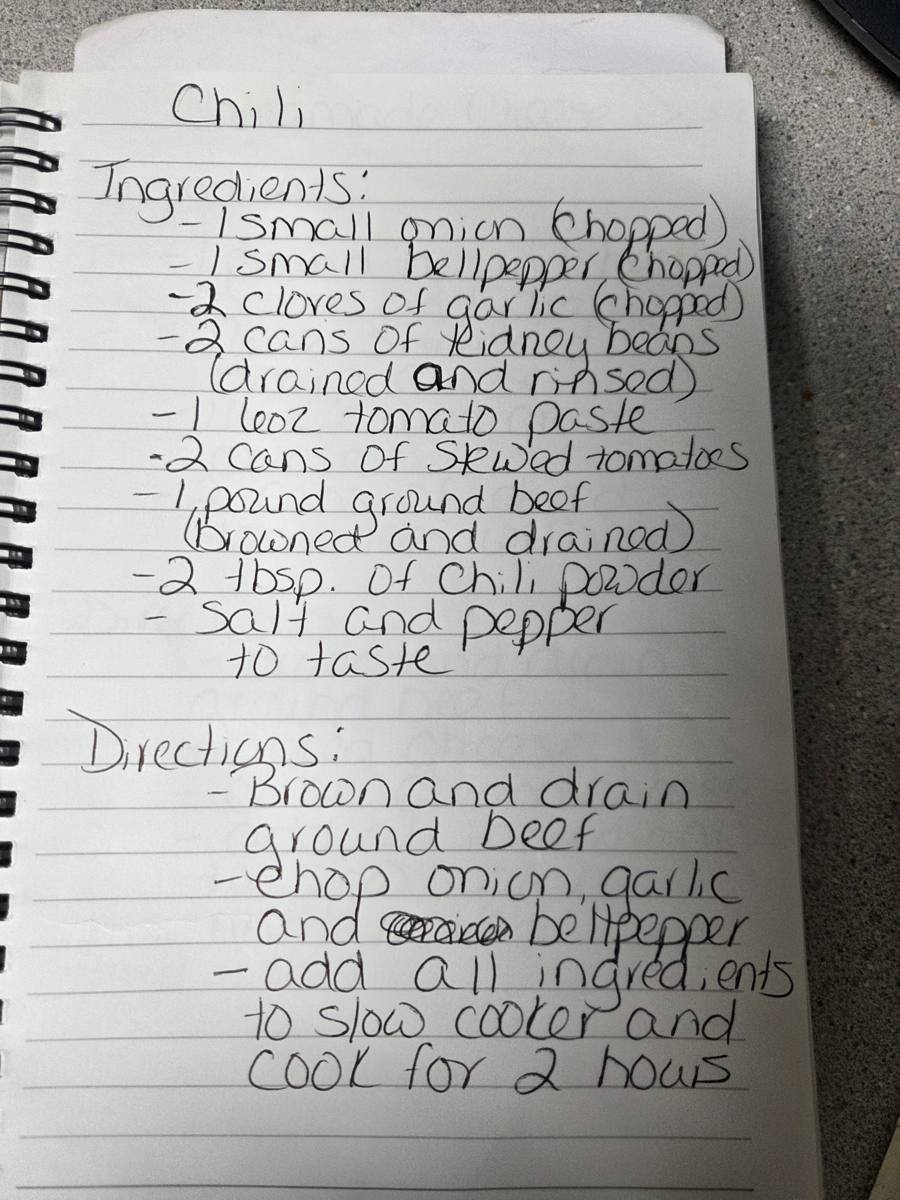 Chili
Ingredients:
- 1 small onion (chopped)
- 1 small bellpepper (chopped)
- 2 cloves of garlic (chopped)
- 2 cans of kidney beans
(drained and rinsed)
- 1 6oz tomato paste
- 2 cans of stewed tomatoes
- 1 pound ground beef
(browned and drained)
- 2 tbsp. of chili powder
- salt and pepper
to taste
Directions:
- Brown and drain
ground beef
- chop onion, garlic
and bellpepper
- add all ingredients
to slow cooker and
cook for 2 hours